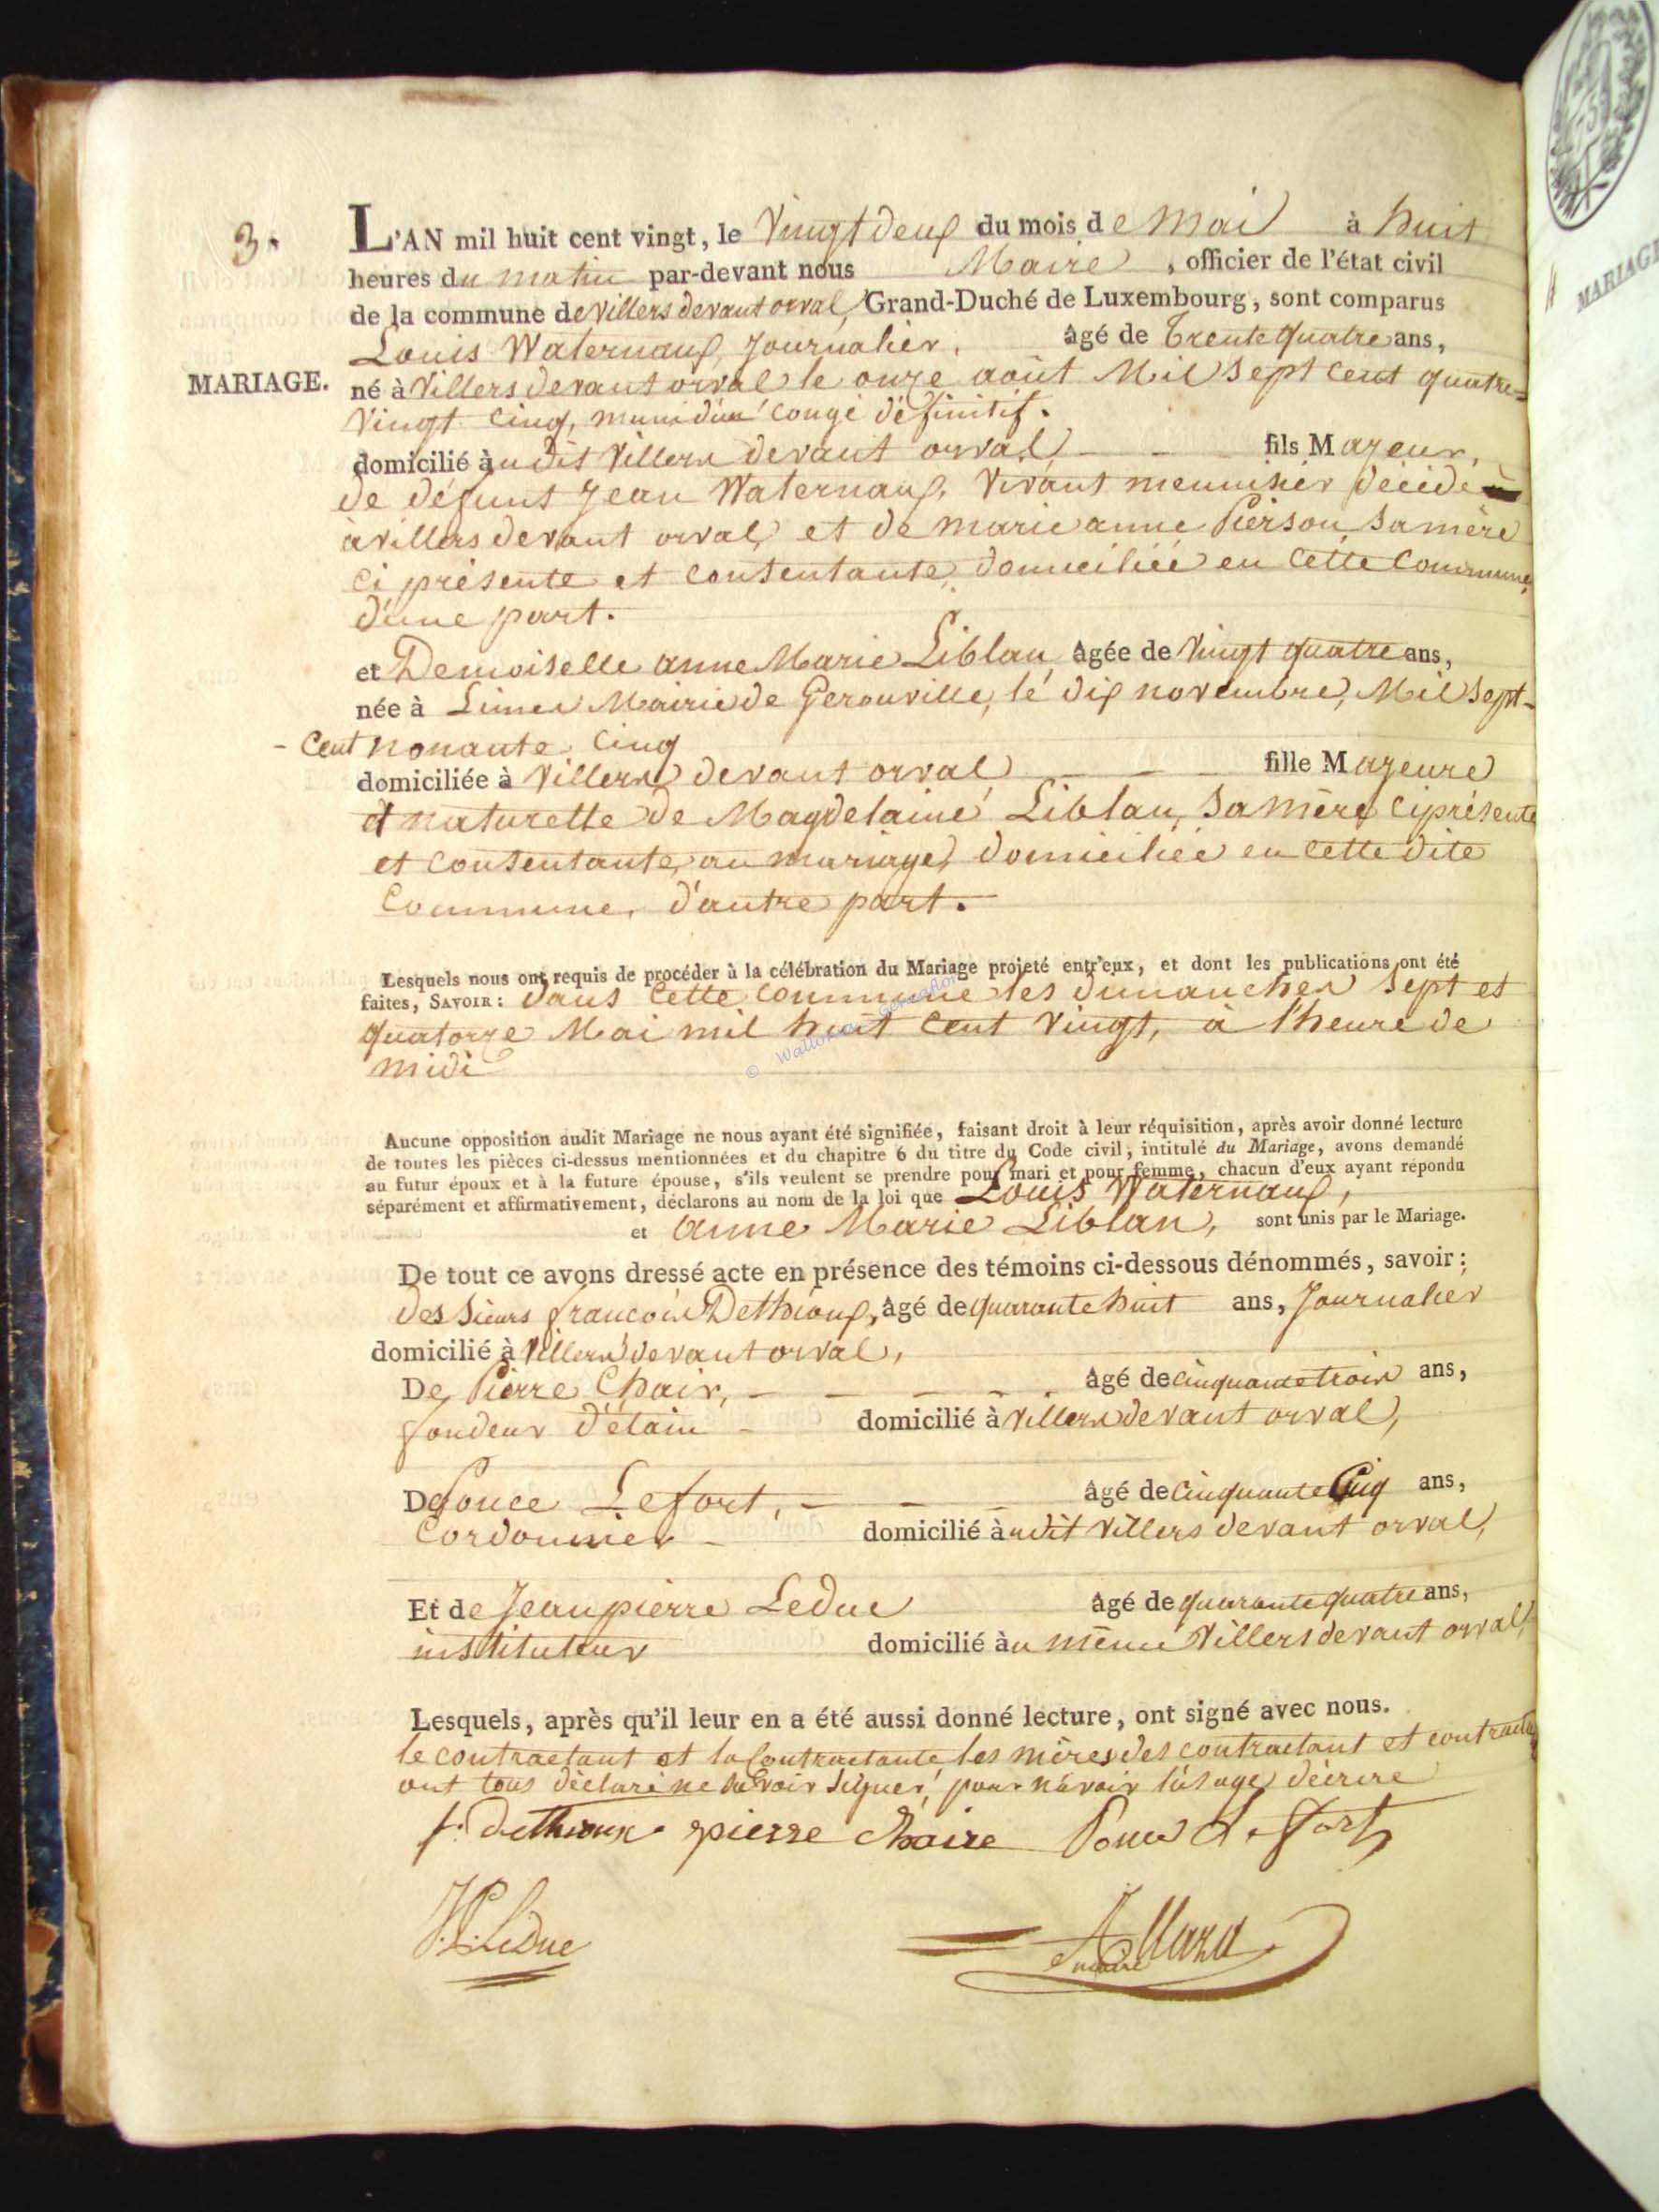 3.
L'AN mil huit cent vingt, le Vingt deux du mois de Mai à huit
heures du matin par-devant nous Maire, officier de l'état civil
de la commune de Villers devant orval, Grand-Duché de Luxembourg, sont comparus
Louis Waternaux, Journalier, âgé de Trente quatre ans,
MARIAGE. né à Villers devant orval le onze août Mil Sept cent quatre-
Vingt Cinq, muni d'un congé définitif.
domicilié à udit Villers devant orval fils Majeur,
de défunt Jean Waternaux, Vivant menuisier décédé
à villers devant orval et de marie anne Pierson Sa mère
ci présente et consentante, domiciliée en cette Commune,
d'une part.
et Demoiselle anne Marie Liblan âgée de Vingt quatre ans,
née à Limes Mairie de Gerouville, le dix novembre, Mil Sept-
- cent nonante Cinq
domiciliée à Villers devant orval fille Majeure
et naturelle de Magdelaine Liblan, Sa Mère ci présente
et consentante, au mariage, domiciliée en cette dite
Commune, d'autre part.
Lesquels nous ont requis de procéder à la célébration du Mariage projeté entr'eux, et dont les publications ont été
faites, SAVOIR: dans cette commune les dimanches Sept et
quatorze Mai mil huit cent Vingt, à l'heure de
midi
Aucune opposition audit Mariage ne nous ayant été signifiée, faisant droit à leur réquisition, après avoir donné lecture
de toutes les pièces ci-dessus mentionnées et du chapitre 6 du titre du Code civil, intitulé du Mariage, avons demandé
au futur époux et à la future épouse, s'ils veulent se prendre pour mari et pour femme, chacun d'eux ayant répondu
séparément et affirmativement, déclarons au nom de la loi que Louis Waternaux,
et anne Marie Liblan, sont unis par le Mariage.
De tout ce avons dressé acte en présence des témoins ci-dessous dénommés, savoir:
des Sieurs françois Dethioux, âgé de quarante huit ans, Journalier
domicilié à Villers devant orval,
De Pierre Chair, âgé de cinquante trois ans,
fondeur d'étain domicilié à Villers devant orval,
De Ponce Lefort, âgé de Cinquante Cinq ans,
Cordonnier domicilié à udit Villers devant orval,
Et de Jean pierre Leduc âgé de quarante quatre ans,
instituteur domicilié à u même Villers devant orval,
Lesquels, après qu'il leur en a été aussi donné lecture, ont signé avec nous.
le contractant et la Contractante, les mères des contractant et
ont tous déclaré ne savoir signer, pour n'avoir l'usage d'écrire
f: dethioux pierre chaire Ponce Lefort
JP Leduc
maire
MARIAGE